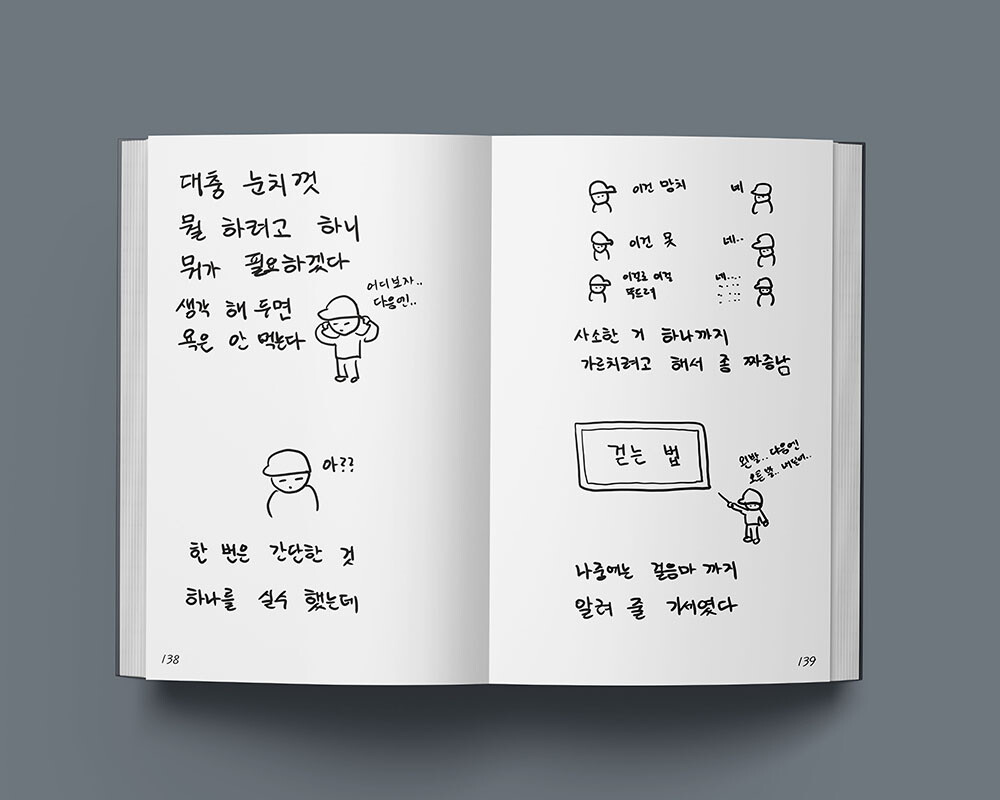 대충 눈치껏
뭘 하려고 하니
뭐가 필요하겠다
생각 해 두면
욕은 안 먹는다
어디보자..
다음엔..
아??
한 번은 간단한 것
하나를 실수 했는데
138
이건 망치
네
이건 못
네..
이걸로 이걸
뚝드려
네....
사소한 거 하나까지
가르치려고 해서 좀 짜증남
걷는 법
왼발.. 다음엔
오른발.. 내밀어..
나중에는 걸음마 까지
알려 줄 기세였다
139